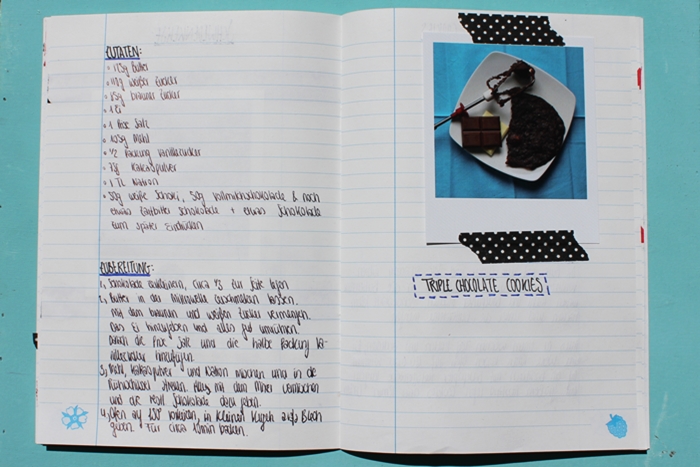 ZUTATEN:
Butter
weißer Zucker
brauner Zucker
1 Ei
1 Prise Salz
Mehl
1/2 Packung Vanillezucker
Kakaopulver
1 TL Natron
50g weiße Schoki, 50g Vollmilchschokolade & noch
etwas Zartbitter Schokolade + etwas Schokolade
zum später Eindrücken
ZUBEREITUNG:
1, Schokolade zerkleinern, circa 1/3 zur Seite legen
2, Butter in der Mikrowelle schmelzen lassen.
mit dem braunen und weißen Zucker vermengen.
Das Ei hinzugeben und alles gut umrühren.
die Prise Salz und die halbe Packung Va-
nillezucker hinzufügen.
3, Mehl, Kakaopulver und Natron mischen und in die
Rührschüssel. Alles mit dem Mixer vermischen
und die restl. Schokolade dazu geben.
4, Ofen auf vorheizen, in kleinen Kugeln aufs Blech
geben. Für circa backen.
TRIPLE CHOCOLATE COOKIES